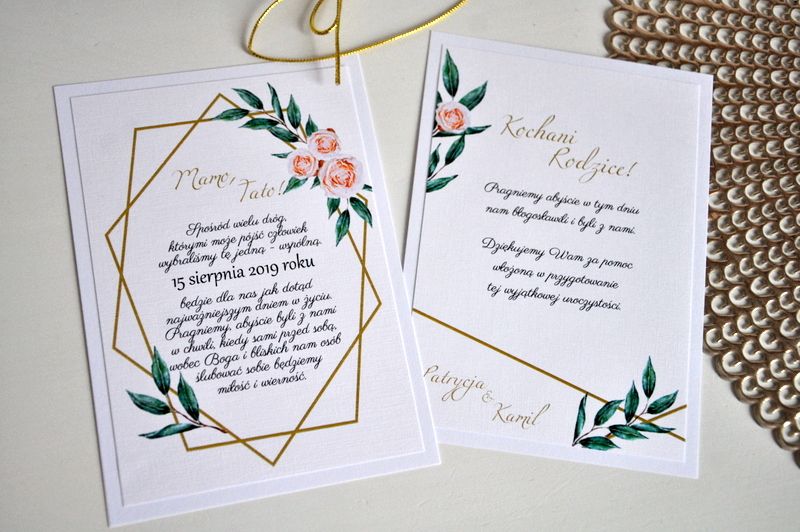 Mamo,
Tato!
Spośród wielu dróg,
którymi może pójść człowiek
wybraliśmy tę jedną - wspólną.
15 sierpnia 2019 roku
będzie dla nas jak dotąd
najważniejszym dniem w życiu.
Pragniemy, abyście byli z nami
w chwili, kiedy sami przed sobą,
wobec Boga i bliskich nam osób
ślubować sobie będziemy
miłość i wierność.
Kochani
Rodzice!
Pragniemy abyście w tym dniu
nam błogosławili i byli z nami.
Dziękujemy Wam za pomoc
włożoną w przygotowanie
tej wyjątkowej uroczystości.
Patrycja
&
Kamil